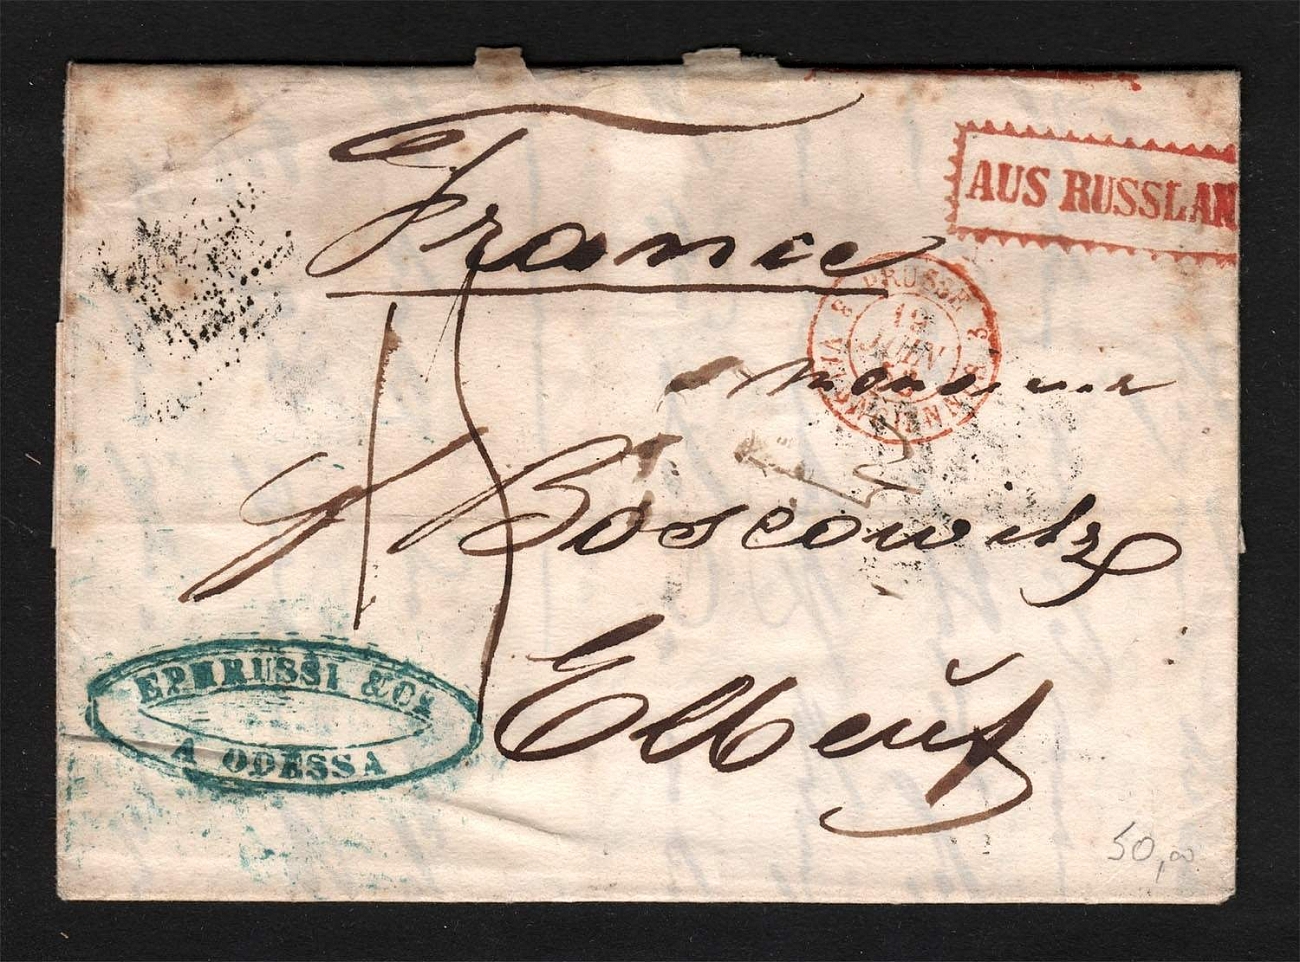 France
AUS RUSSLAN
PRUSSE 3
VALENCIENNES 3
19
JUIN
Monsieur
Boscowitz
Elbeuf
EPHRUSSI & Co.
A ODESSA
50,00